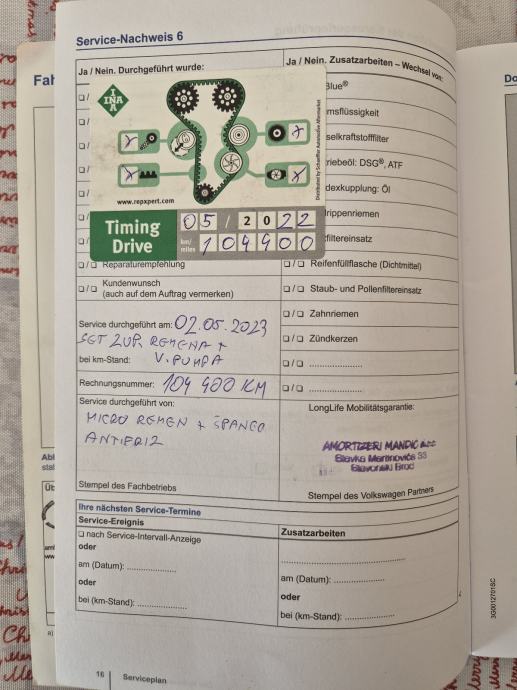 Service-Nachweis 6
Ja / Nein. Durchgeführt wurde:
Ja / Nein. Zusatzarbeiten – Wechsel von:
INA
www.repxpert.com
Distributed by Schaeffler Automotive Aftermarket
Timing Drive
05 / 2022
km/miles 104900
Blue®
msflüssigkeit
selkraftstofffilter
riebeöl: DSG®, ATF
dexkupplung: Öl
rippenriemen
filtereinsatz
❑ / ❑ Reparaturempfehlung
❑ / ❑ Reifenfüllflasche (Dichtmittel)
❑ / ❑ Kundenwunsch
(auch auf dem Auftrag vermerken)
❑ / ❑ Staub- und Pollenfiltereinsatz
❑ / ❑ Zahnriemen
❑ / ❑ Zündkerzen
❑ / ❑ ....................
❑ / ❑ ....................
Service durchgeführt am: 02.05.2023
SET ZUP. REMENA +
bei km-Stand: V. PUMPA
Rechnungsnummer: 104 900 KM
Service durchgeführt von:
MICRO REMEN + ŠPANER
ANTIFRIZ
LongLife Mobilitätsgarantie:
AMORTIZERI MANDIĆ
Slavonski Brod
Stempel des Fachbetriebs
Stempel des Volkswagen Partners
Ihre nächsten Service-Termine
Service-Ereignis
Zusatzarbeiten
❑ nach Service-Intervall-Anzeige
oder
am (Datum): ....................
oder
bei (km-Stand): ....................
....................
am (Datum): ....................
oder
bei (km-Stand): ....................
16 Serviceplan
3G0012701SC
Fah
Do